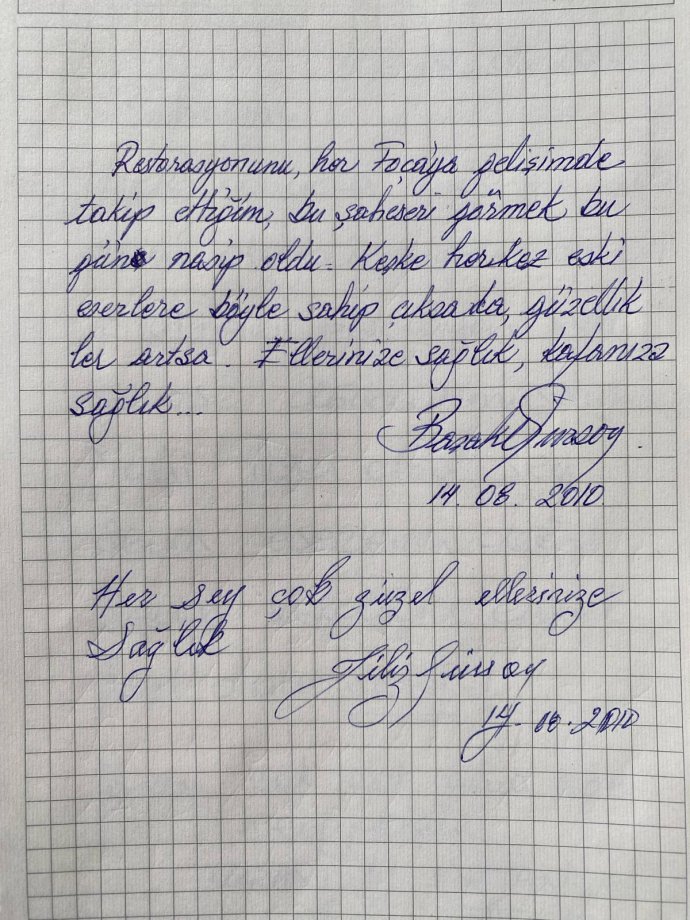 Restorasyonunu, her Foça'ya gelişimde
takip ettiğim, bu şaheseri görmek bu
güne nasip oldu. Keşke herkez eski
eserlere böyle sahip çıksada, güzellik
ler artsa. Ellerinize sağlık, kafanıza
sağlık...
Başak Gürsoy.
14.08.2010.
Her şey çok güzel ellerinize
Sağlık
Filiz Gürsoy
14.08.2010